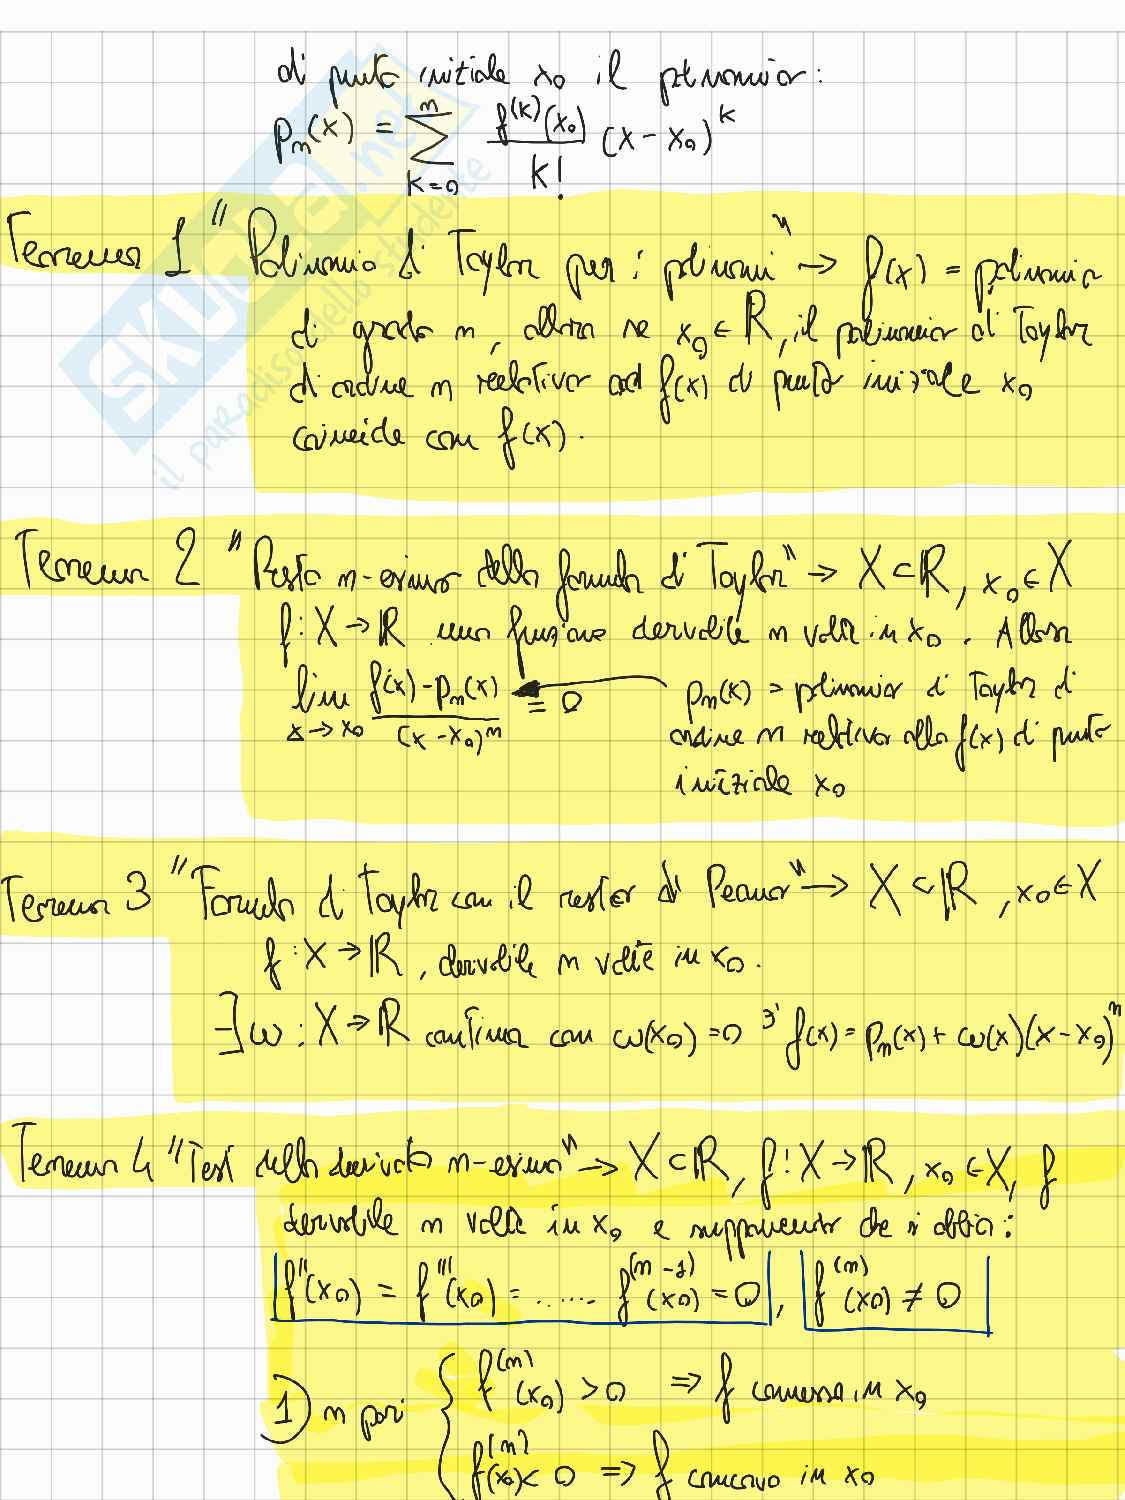 di punto iniziale x₀ il polinomio:
pₙ(x) = Σ_{k=0}^{n} f^(k)(x₀)/k! (x - x₀)^k
Teorema 1 "Polinomio di Taylor per i polinomi" → f(x) = polinomio
di grado n, allora se x₀ ∈ ℝ, il polinomio di Taylor
di ordine n relativo ad f(x) di punto iniziale x₀
coincide con f(x).
Teorema 2 "Resto n-esimo della formula di Taylor" → X ⊂ ℝ, x₀ ∈ X
f: X → ℝ una funzione derivabile n volte in x₀. Allora
lim_{x→x₀} (f(x) - pₙ(x))/(x - x₀)^n = 0
pₙ(x) = polinomio di Taylor di
ordine n relativo alla f(x) di punto
iniziale x₀
Teorema 3 "Formula di Taylor con il resto di Peano" → X ⊂ ℝ, x₀ ∈ X
f: X → ℝ, derivabile n volte in x₀.
∃ ω: X → ℝ continua con ω(x₀) = 0 ∋' f(x) = pₙ(x) + ω(x)(x - x₀)^n
Teorema 4 "Test della derivata n-esima" → X ⊂ ℝ, f: X → ℝ, x₀ ∈ X, f
derivabile n volte in x₀ e supponendo che si abbia:
f''(x₀) = f'''(x₀) = ...... f^(n-1)(x₀) = 0, f^(n)(x₀) ≠ 0
1) n pari { f^(n)(x₀) > 0 ⇒ f convessa in x₀
f^(n)(x₀) < 0 ⇒ f concava in x₀
SKUOLA.net
il paradiso dello studente